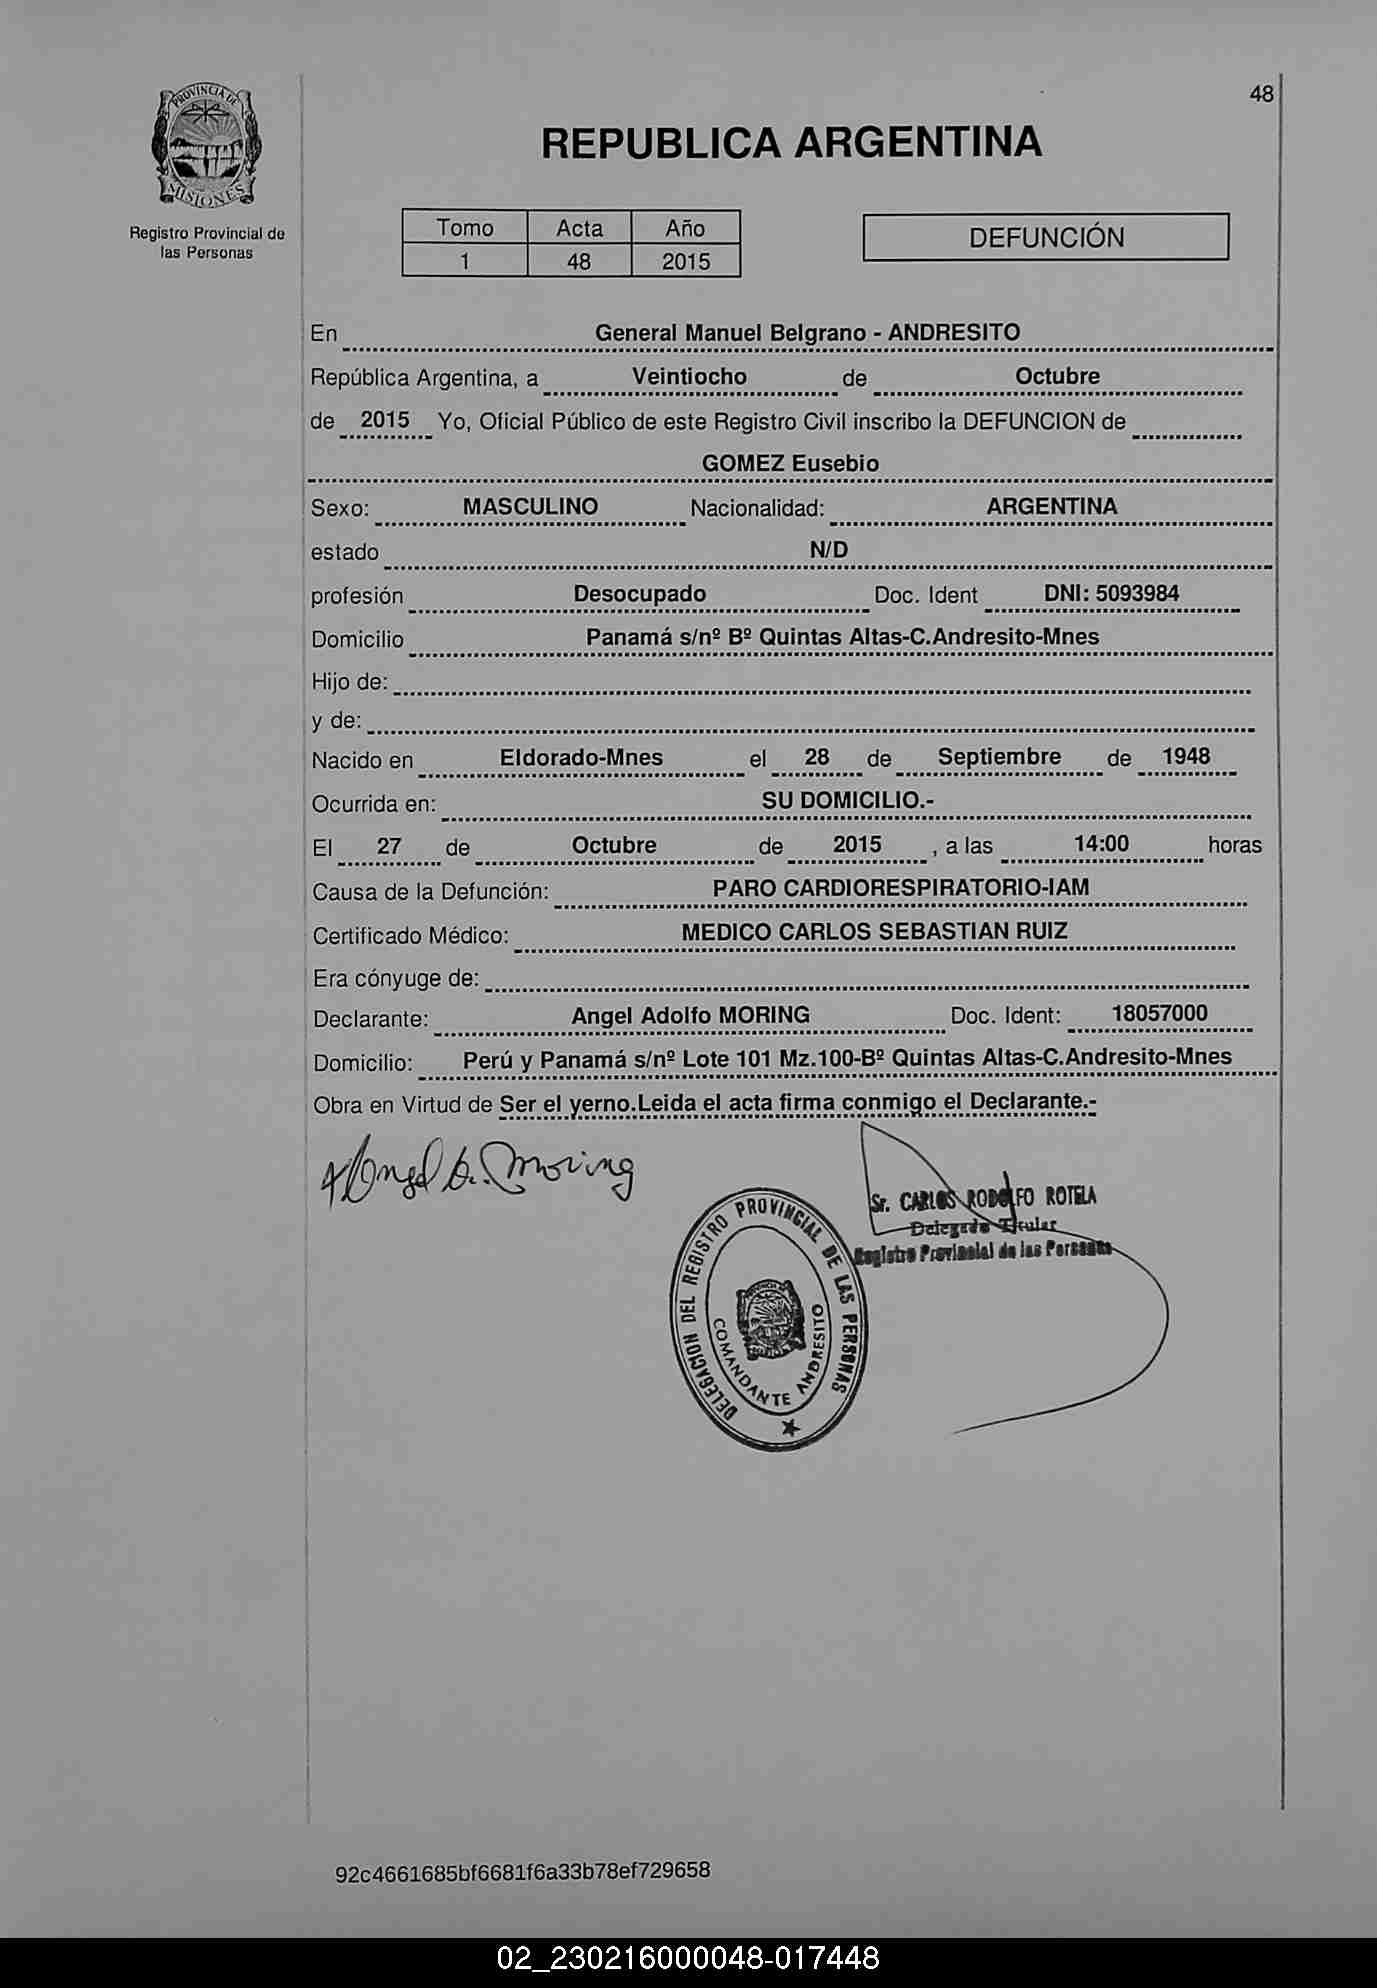 48
PROVINCIA DE
MISIONES
Registro Provincial de
las Personas
REPUBLICA ARGENTINA
Tomo Acta Año
1 48 2015
DEFUNCIÓN
En General Manuel Belgrano - ANDRESITO
República Argentina, a Veintiocho de Octubre
de 2015 Yo, Oficial Público de este Registro Civil inscribo la DEFUNCION de
GOMEZ Eusebio
Sexo: MASCULINO Nacionalidad: ARGENTINA
estado N/D
profesión Desocupado Doc. Ident DNI: 5093984
Domicilio Panamá s/nº Bº Quintas Altas-C.Andresito-Mnes
Hijo de:
y de:
Nacido en Eldorado-Mnes el 28 de Septiembre de 1948
Ocurrida en: SU DOMICILIO.-
El 27 de Octubre de 2015 , a las 14:00 horas
Causa de la Defunción: PARO CARDIORESPIRATORIO-IAM
Certificado Médico: MEDICO CARLOS SEBASTIAN RUIZ
Era cónyuge de:
Declarante: Angel Adolfo MORING Doc. Ident: 18057000
Domicilio: Perú y Panamá s/nº Lote 101 Mz.100-Bº Quintas Altas-C.Andresito-Mnes
Obra en Virtud de Ser el yerno.Leida el acta firma conmigo el Declarante.-
Angel A. Moring
Sr. CARLOS RODOLFO ROTELA
Delegado Titular
Registro Provincial de las Personas
DELEGACION DEL REGISTRO PROVINCIAL DE LAS PERSONAS
COMANDANTE ANDRESITO
92c4661685bf6681f6a33b78ef729658
02_230216000048-017448